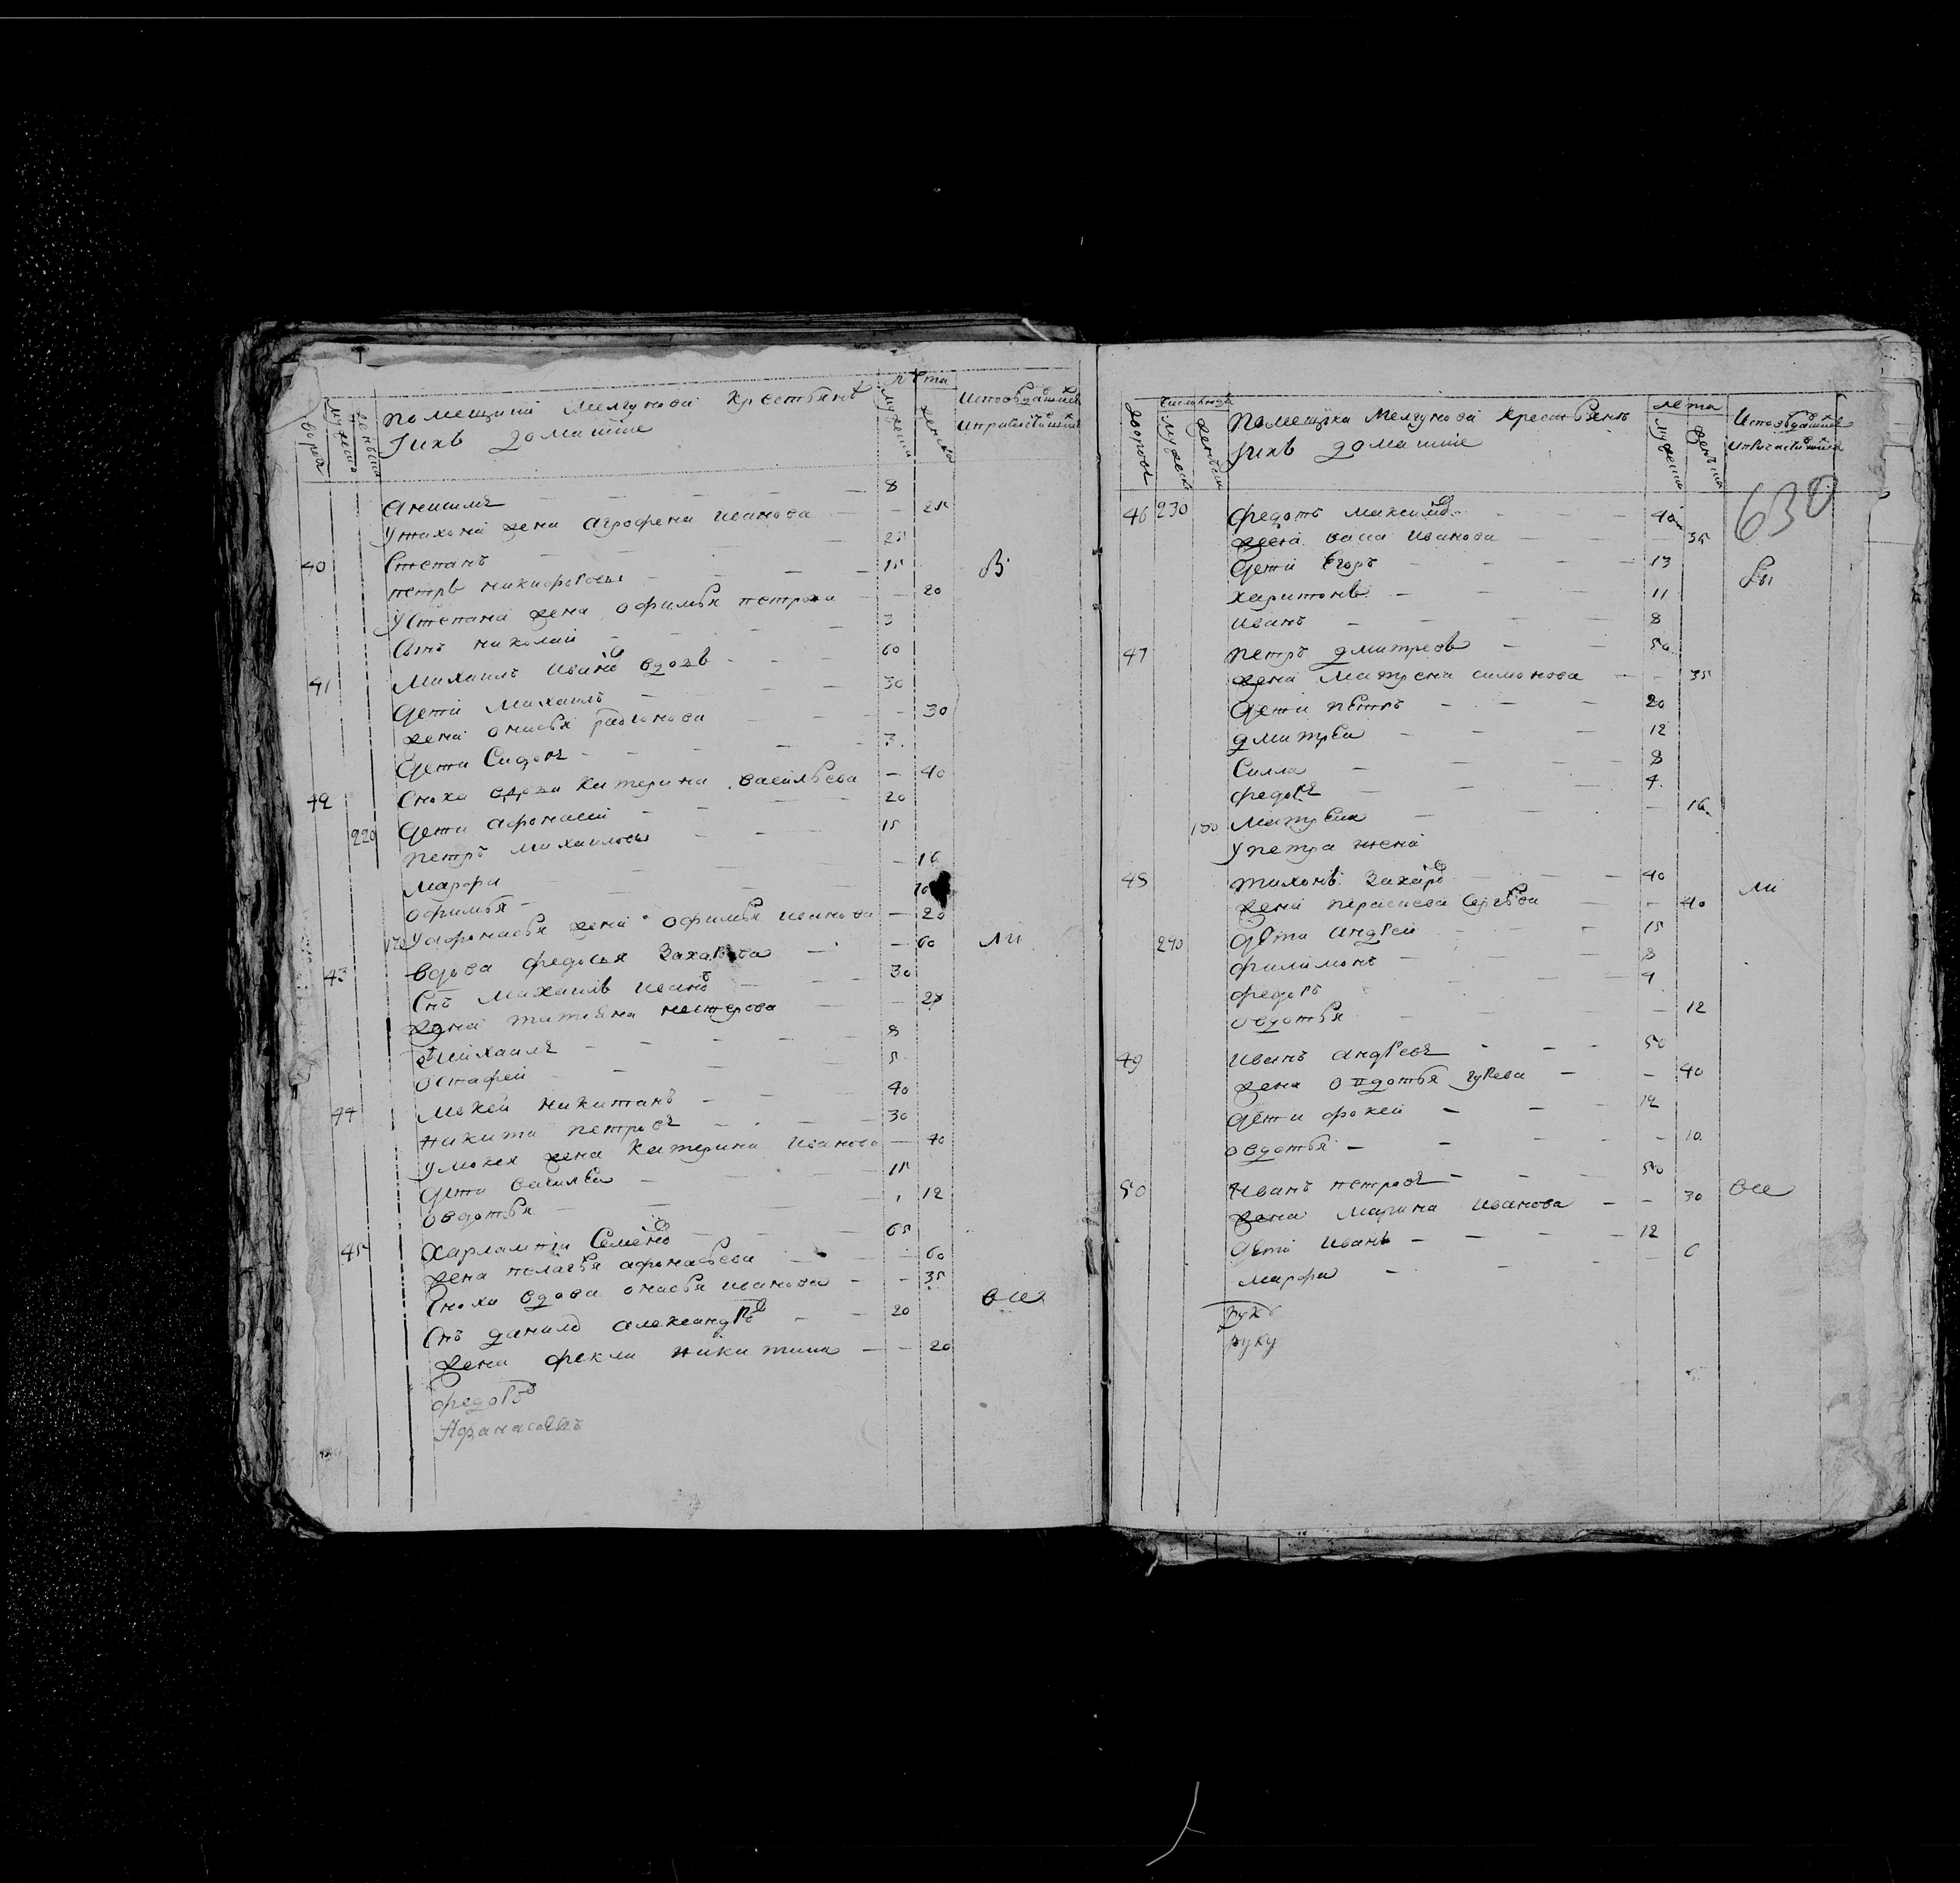 лета
помещика Мелгунова крестьянъ
Iихъ домашніе
дворовъ мужеска женска мужеска женска
Анисимъ — 8
Утихона жена Агрофена Иванова — 25
40 Степанъ — 25
петръ никифоровы — 15 в
Устепана жена офимья петрова — 20
Сынъ николай — 3
41 Михаилъ Иванов вдовъ — 60
дети Михаилъ — 30
жена онисья — 30
дети Сидоръ — 3
42 Сноха вдова катерина васильева — 40
220 дети афонасей — 20
петръ михаиловы — 15
марфа — 16
офимья — 10
170 Уафонасья жена офимья иванова — 20
43 вдова федосья Захарова — 60 ли
Снъ михаилъ иванов — 30
жена татияна нестерова — 28
михаилъ — 8
остафей — 5
44 мокей никитанъ — 40
никита петровъ — 30
Умокея жена катерина иванова — 40
дети василеи — 15
овдотья — 12
45 харлампіи Семенов — 65
жена пелагья афонасьева — 60
Сноха вдова онисья иванова — 35
Снъ данило александров — 20 вие
жена фекла никитина — 20
федоров
Афанасьевъ
числолюдеи лета
помещика Мелгунова крестьянъ
Iихъ домашніе
дворовъ мужеска женска мужеска женска
630
46 230 федотъ максимов — 40
жена васса иванова — 35
дети Егоръ — 13
харитонъ — 11
иванъ — 8
47 петръ дмитревъ — 50
жена матрена симонова — 35
дети петръ — 20
дмитреи — 12
Силла — 8
федоръ — 4
180 матрена — 16
Упетра жена
48 тихонъ Захаров — 40 ли
жена парасева Сергѣева — 40
240 дѣти андрей — 15
филимонъ — 8
федоръ — 4
овдотья — 12
49 иванъ андреевъ — 50
жена овдотья гурева — 40
дети фокей — 12
овдотья — 10
50 Иванъ петровъ — 50 вие
жена марина иванова — 30
дѣти иванъ — 12
марфа — 6
рукъ
руку